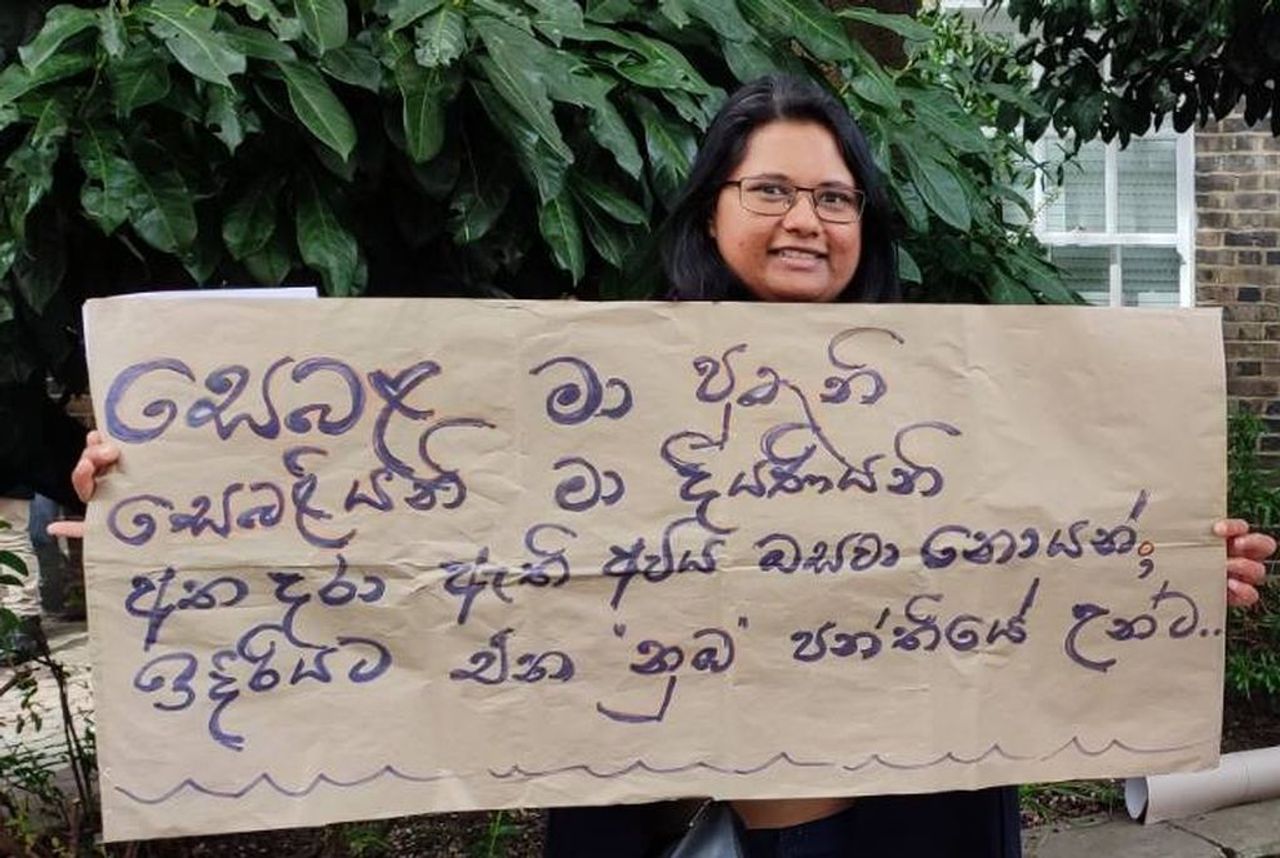 සෙබළ මා පුතුනි
සෙබළියනි මා දියණියනි
අත දරා ඇති අවිය ඔසවා නොයන්,
ඉදිරියට එන "නුඹ" පන්තියේ උන්ට..